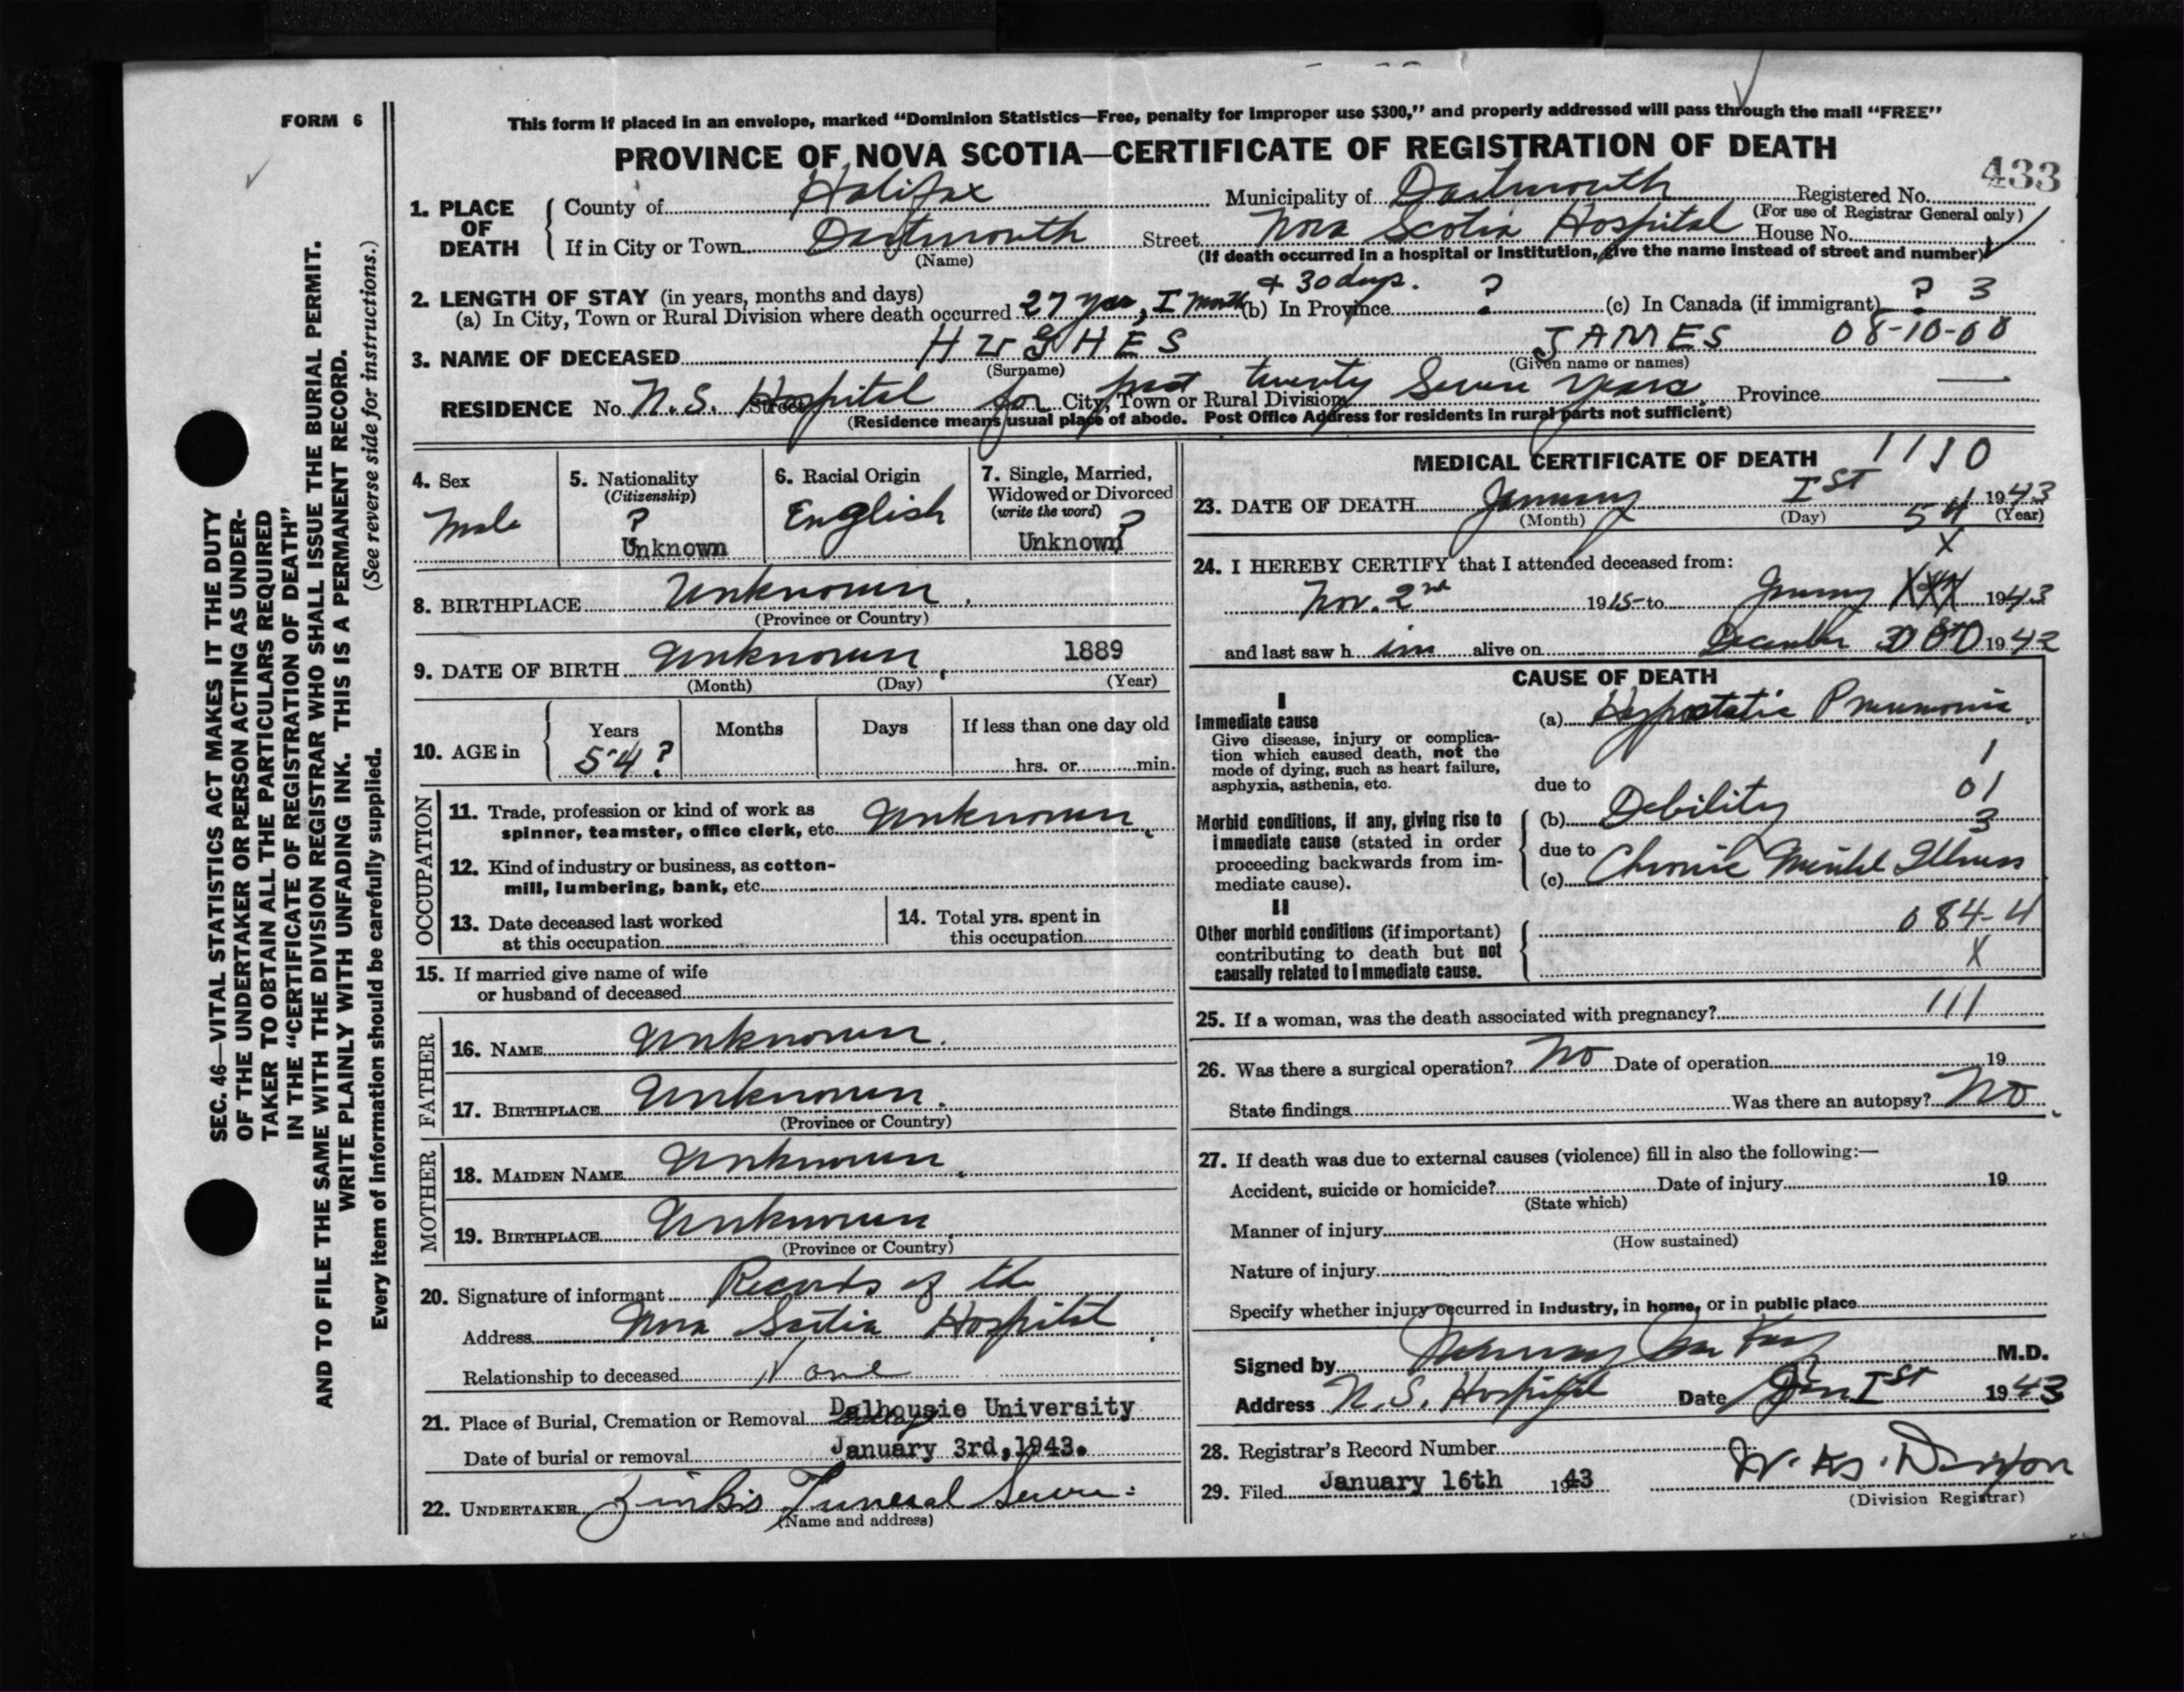 FORM 6
This form if placed in an envelope, marked “Dominion Statistics—Free, penalty for improper use $300,” and properly addressed will pass through the mail “FREE”
PROVINCE OF NOVA SCOTIA—CERTIFICATE OF REGISTRATION OF DEATH
433
1. PLACE OF DEATH
County of Halifax Municipality of Dartmouth Registered No.
(For use of Registrar General only)
If in City or Town Dartmouth Street Nova Scotia Hospital House No.
(Name) (If death occurred in a hospital or institution, give the name instead of street and number)
2. LENGTH OF STAY (in years, months and days) + 30 days.
(a) In City, Town or Rural Division where death occurred 27 year, I month (b) In Province ? (c) In Canada (if immigrant) ? 3
3. NAME OF DECEASED HUGHES JAMES 08-10-00
(Surname) (Given name or names)
RESIDENCE No. N.S. Street Hospital for past twenty Seven years. City, Town or Rural Division Province —
(Residence means usual place of abode. Post Office Address for residents in rural parts not sufficient)
4. Sex
Male
5. Nationality
(Citizenship)
?
Unknown
6. Racial Origin
English
7. Single, Married,
Widowed or Divorced
(write the word)
?
Unknown
8. BIRTHPLACE Unknown.
(Province or Country)
9. DATE OF BIRTH Unknown, 1889
(Month) (Day) (Year)
10. AGE in Years Months Days If less than one day old
54? hrs. or min.
OCCUPATION
11. Trade, profession or kind of work as
spinner, teamster, office clerk, etc. Unknown.
12. Kind of industry or business, as cotton-
mill, lumbering, bank, etc.
13. Date deceased last worked
at this occupation
14. Total yrs. spent in
this occupation
15. If married give name of wife
or husband of deceased
FATHER
16. NAME Unknown.
17. BIRTHPLACE Unknown.
(Province or Country)
MOTHER
18. MAIDEN NAME Unknown.
19. BIRTHPLACE Unknown
(Province or Country)
20. Signature of informant Records of the
Address Nova Scotia Hospital.
Relationship to deceased None
21. Place of Burial, Cremation or Removal Dalhousie University
Date of burial or removal January 3rd, 1943.
22. UNDERTAKER Funeral
(Name and address)
MEDICAL CERTIFICATE OF DEATH 1110
23. DATE OF DEATH January IST 1943
(Month) (Day) (Year)
54
X
24. I HEREBY CERTIFY that I attended deceased from:
Nov. 2nd 1915 to January 1943
and last saw him alive on December 30 1942
CAUSE OF DEATH
I
Immediate cause
Give disease, injury or complica-
tion which caused death, not the
mode of dying, such as heart failure,
asphyxia, asthenia, etc.
(a) Hypostatic Pneumonia
1
due to
01
Morbid conditions, if any, giving rise to
immediate cause (stated in order
proceeding backwards from im-
mediate cause).
(b) Debility
3
due to
(c) Chronic Mental Illness
II
Other morbid conditions (if important)
contributing to death but not
causally related to immediate cause.
084-4
X
25. If a woman, was the death associated with pregnancy? 111
26. Was there a surgical operation? No Date of operation 19
State findings Was there an autopsy? No.
27. If death was due to external causes (violence) fill in also the following:—
Accident, suicide or homicide? Date of injury 19
(State which)
Manner of injury
(How sustained)
Nature of injury
Specify whether injury occurred in industry, in home, or in public place
Signed by M.D.
Address N.S. Hospital Date Jan IST 1943
28. Registrar's Record Number
29. Filed January 16th 1943
(Division Registrar)
SEC. 46—VITAL STATISTICS ACT MAKES IT THE DUTY
OF THE UNDERTAKER OR PERSON ACTING AS UNDER-
TAKER TO OBTAIN ALL THE PARTICULARS REQUIRED
IN THE “CERTIFICATE OF REGISTRATION OF DEATH”
AND TO FILE THE SAME WITH THE DIVISION REGISTRAR WHO SHALL ISSUE THE BURIAL PERMIT.
WRITE PLAINLY WITH UNFADING INK. THIS IS A PERMANENT RECORD.
Every item of information should be carefully supplied. (See reverse side for instructions.)